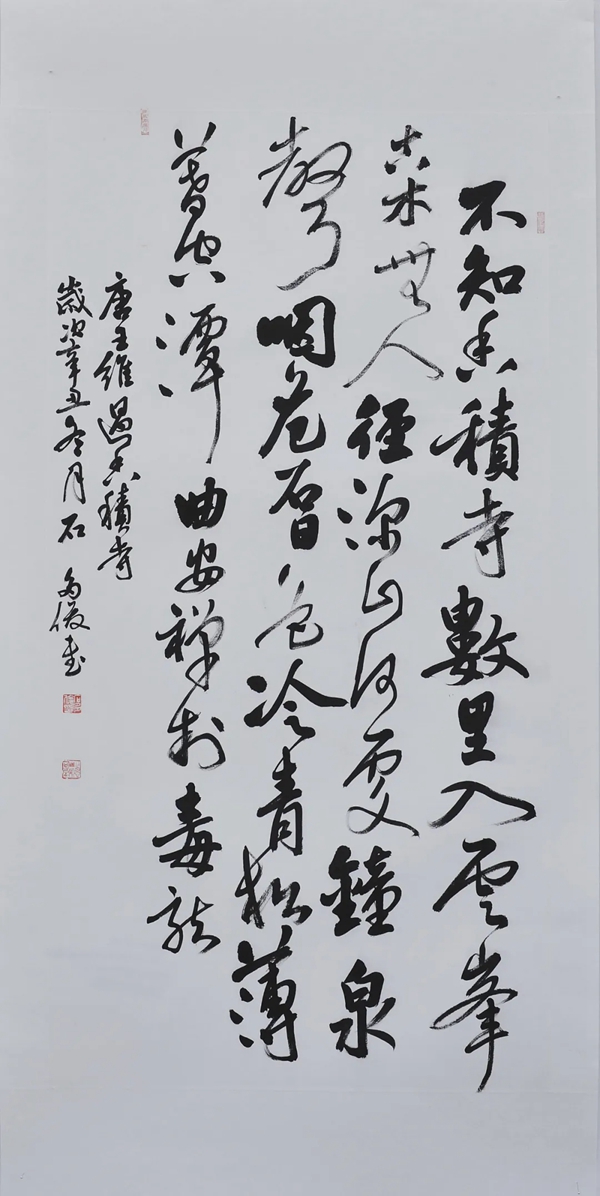 不知香積寺數里入雲峯
古木無人徑深山何處鐘泉
聲咽危石日色冷青松薄
暮空潭曲安禪制毒龍
唐王維過香積寺
歲次辛丑冬月石俊書